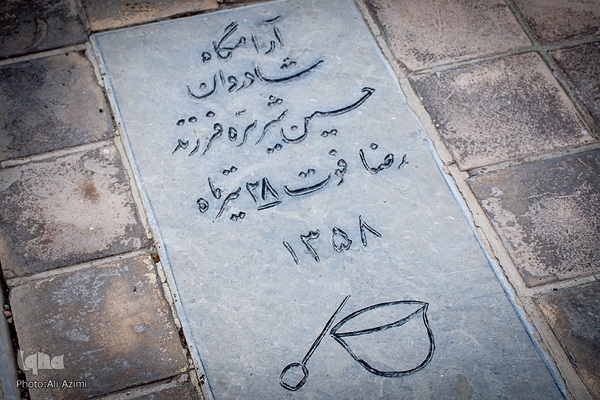 آرامگاه
شادروان
حسین شیربره فرزند
رضا فوت ۲۸ تیرماه
۱۳۵۸
iqna
Photo:Ali Azimi